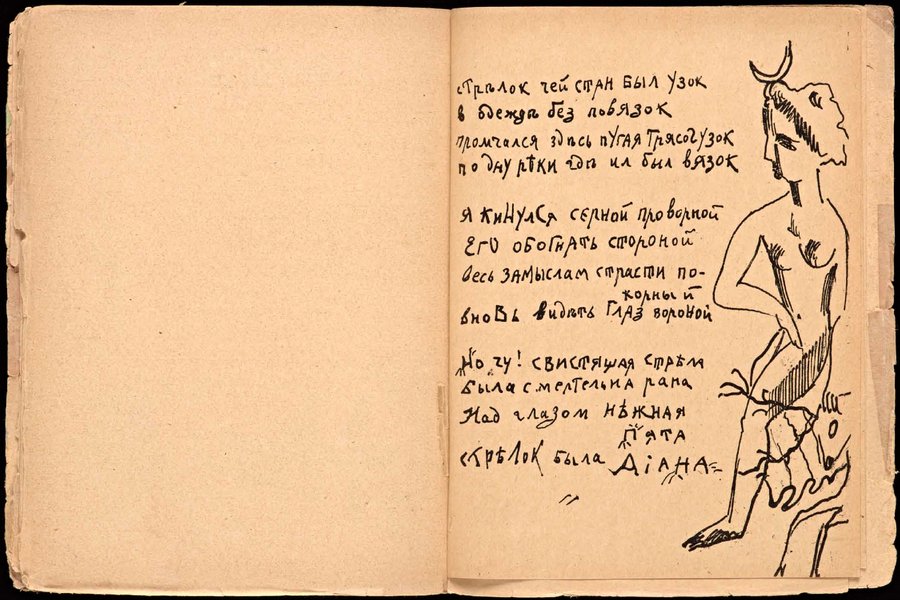 стрѣлок чей стан был узок
в одеждѣ без повязок
промчался здѣсь пугая трясогузок
по дну рѣки гдѣ ил был вязок
я кинулся серной проворной
его обогнать стороной
весь замыслам страсти по-
корный
вновь видѣть глаз вороной
Но чу! свистящая стрѣла
была смертельна рана
Над глазом нѣжная
пята
стрѣлок была Діана